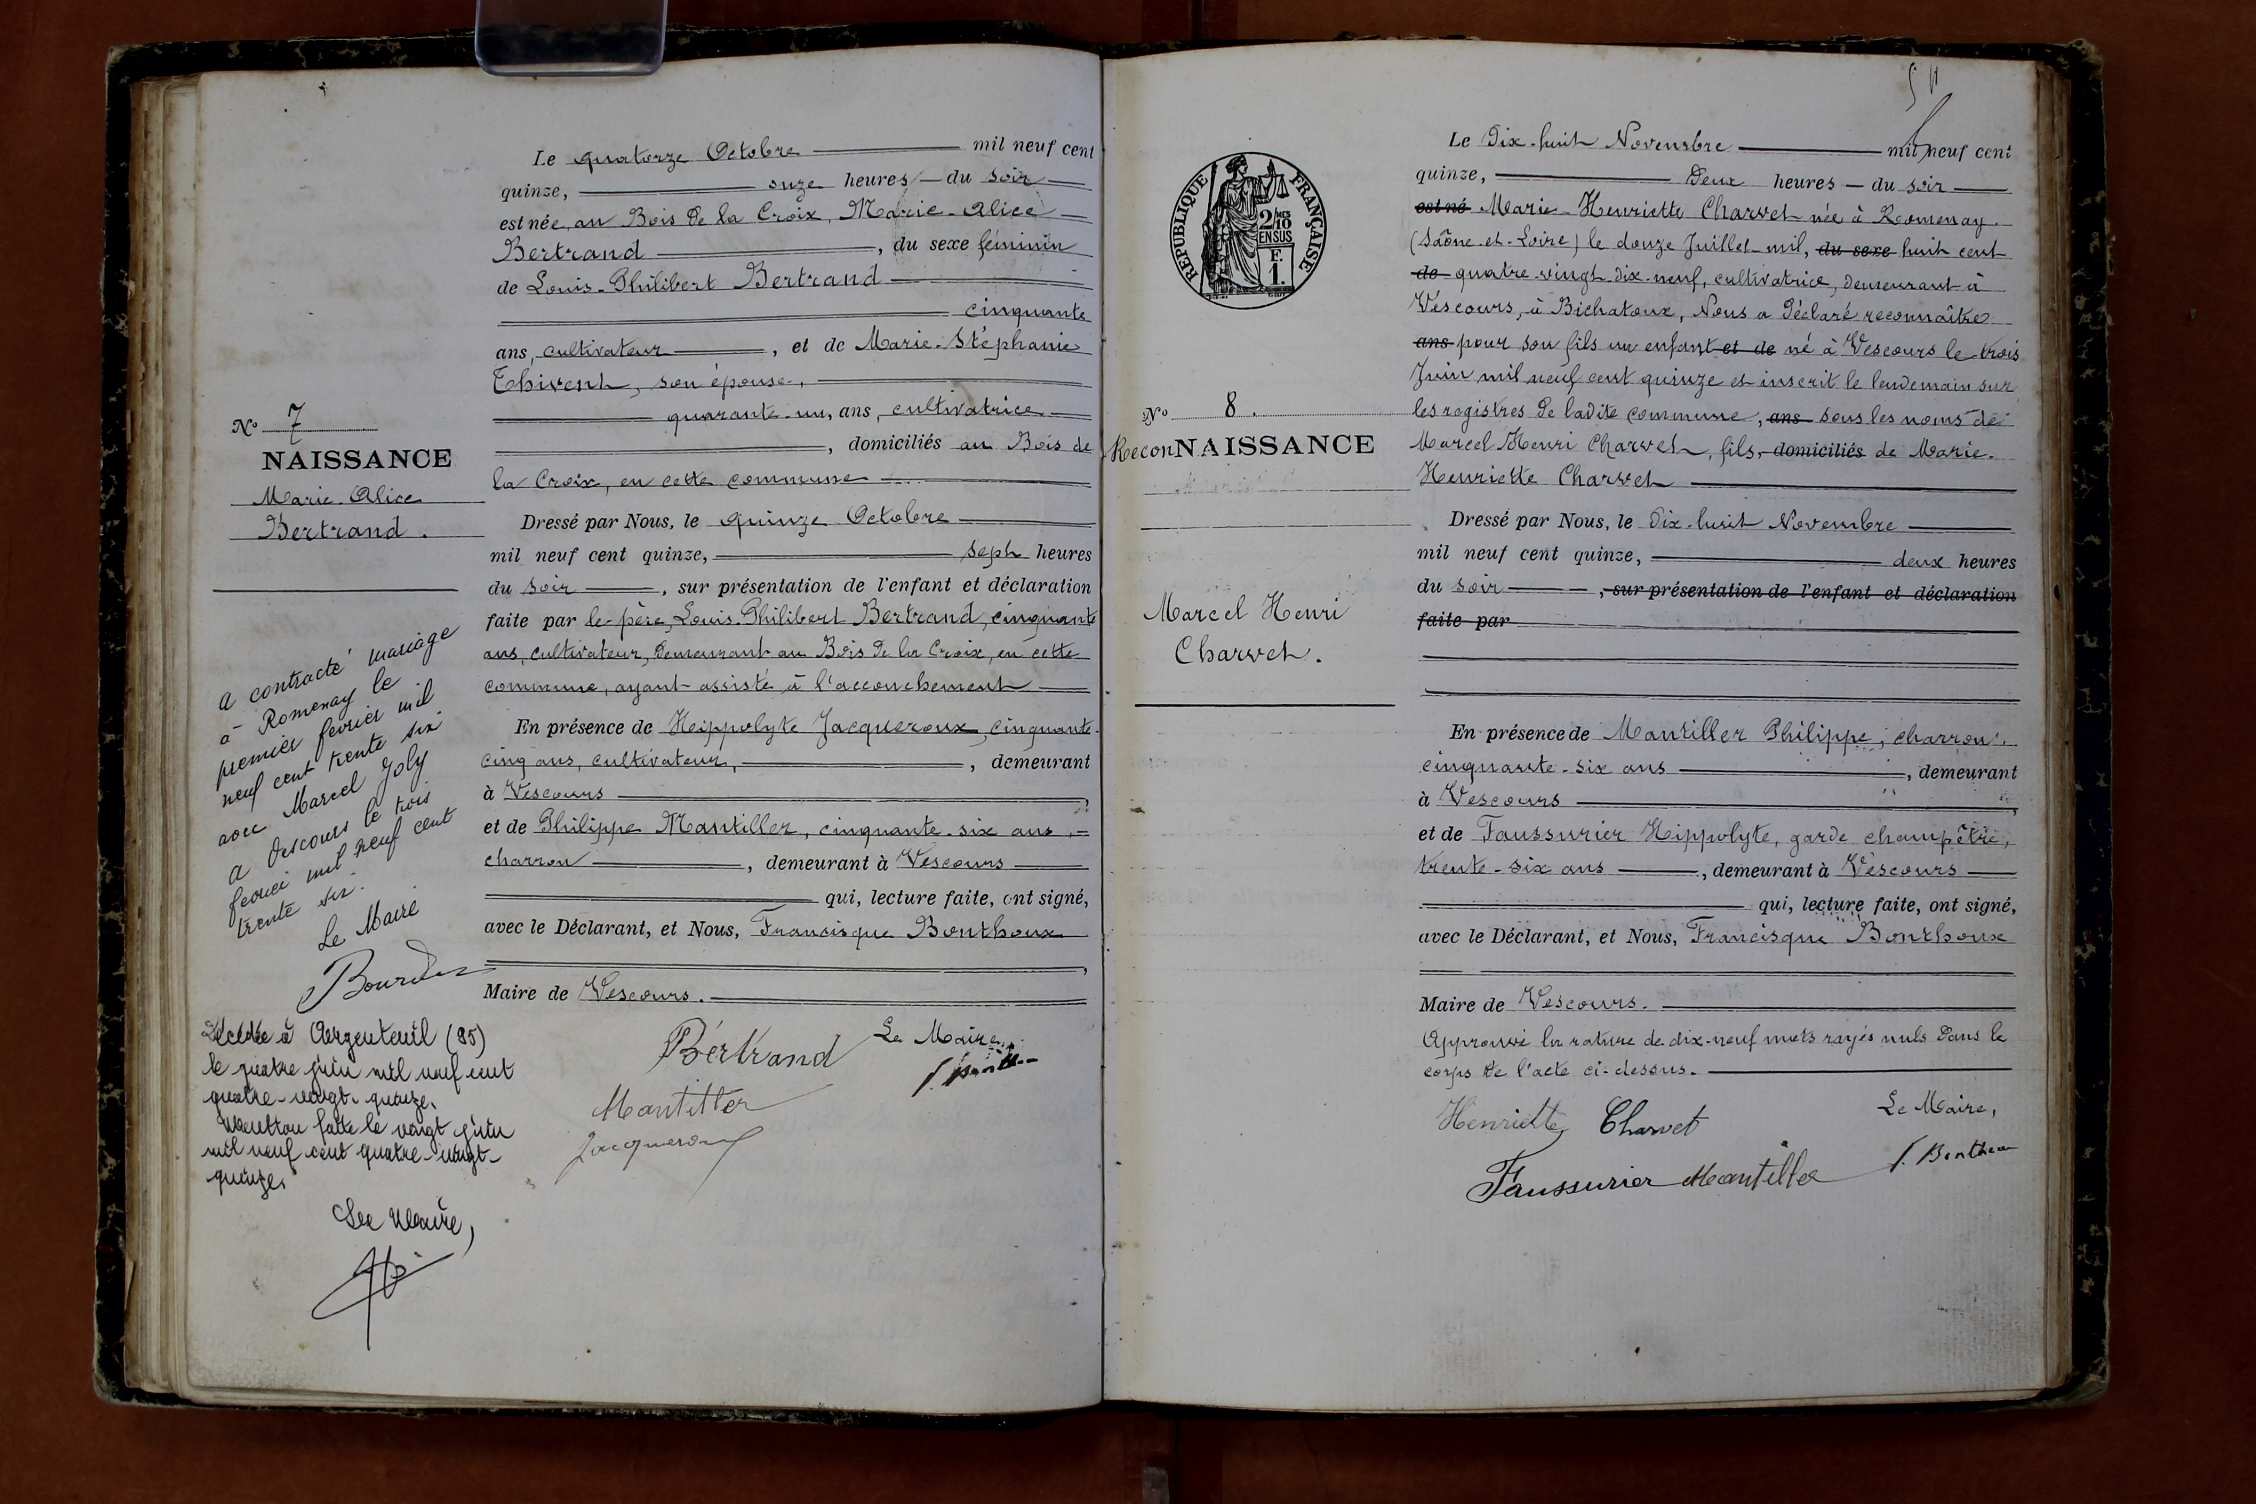 Le quatorze Octobre mil neuf cent
quinze, onze heures du soir
est née, au Bois de la Croix, Marie-Alice
Bertrand, du sexe féminin
de Louis-Philibert Bertrand
cinquante
ans, cultivateur, et de Marie-Stéphanie
Thivent, son épouse,
quarante-un, ans, cultivatrice
, domiciliés au Bois de
la Croix, en cette commune
Dressé par Nous, le quinze Octobre
mil neuf cent quinze, sept heures
du soir, sur présentation de l'enfant et déclaration
faite par le père, Louis-Philibert Bertrand, cinquante
ans, cultivateur, demeurant au Bois de la Croix, en cette
commune, ayant assisté à l'accouchement
En présence de Hippolyte Jacqueroux, cinquante-
cinq ans, cultivateur, demeurant
à Vescours,
et de Philippe Mantiller, cinquante-six ans,
charron, demeurant à Vescours
qui, lecture faite, ont signé,
avec le Déclarant, et Nous, Francisque Bonthoux
,
Maire de Vescours.
Bertrand Le Maire,
Mantiller
Jacqueroux
No 7
NAISSANCE
Marie-Alice
Bertrand.
A contracté mariage
à Romenay le
premier février mil
neuf cent trente six
avec Marcel Joly
A Vescours le trois
février mil neuf cent
trente six.
Le Maire
Décédée à Argenteuil (95)
le quatre juin mil neuf cent
quatre-vingt-quinze.
Mention faite le vingt juin
mil neuf cent quatre-vingt-
quinze.
Le Maire,
Le Dix-huit Novembre mil neuf cent
quinze, Deux heures du soir
est né Marie-Henriette Charvet née à Romenay
(Saône-et-Loire) le douze Juillet mil, du sexe huit cent
de quatre-vingt-dix-neuf, cultivatrice, demeurant à
Vescours, à Bichatoux, Nous a déclaré reconnaître
ans pour son fils un enfant et de né à Vescours le trois
Juin mil neuf cent quinze et inscrit le lendemain sur
les registres de ladite commune, ans sous les noms de
Marcel Henri Charvet, fils, domiciliés de Marie-
Henriette Charvet
Dressé par Nous, le Dix-huit Novembre
mil neuf cent quinze, deux heures
du soir, sur présentation de l'enfant et déclaration
faite par
En présence de Mantiller Philippe, charron,
cinquante-six ans, demeurant
à Vescours
et de Faussurier Hippolyte, garde champêtre,
trente-six ans, demeurant à Vescours
qui, lecture faite, ont signé,
avec le Déclarant, et Nous, Francisque Bonthoux
Maire de Vescours.
Approuvé la rature de dix-neuf mots rayés nuls dans le
corps de l'acte ci-dessus.
Henriette Charvet Le Maire,
Faussurier Mantiller F. Bonthoux
RÉPUBLIQUE FRANÇAISE
2/10 MES
EN SUS
F.
1.
No 8.
ReconNAISSANCE
Marcel Henri
Charvet.